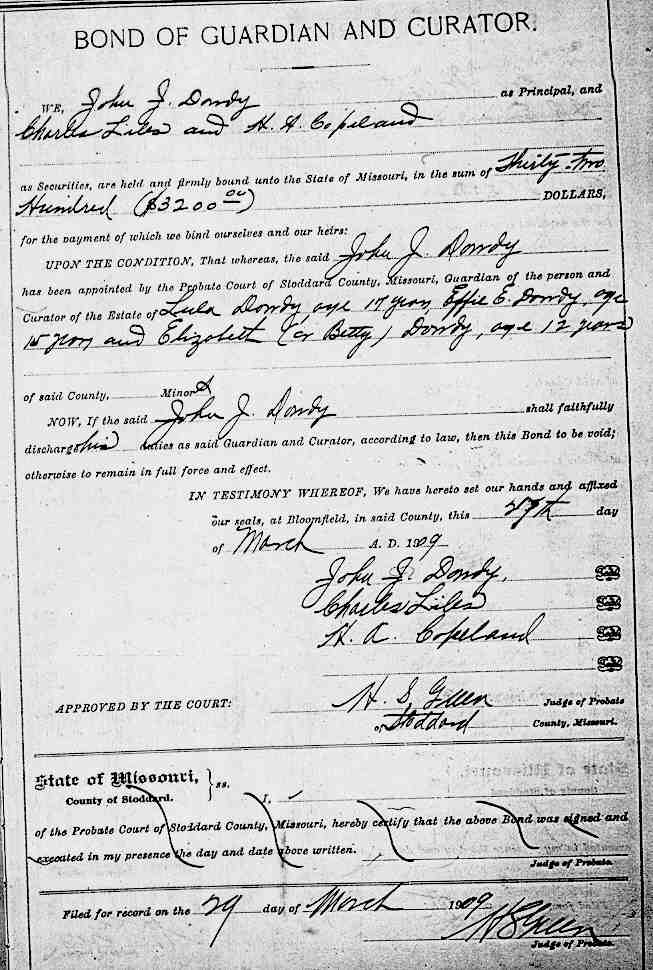 BOND OF GUARDIAN AND CURATOR.
WE, John J. Dowdy as Principal, and
Charles Liles and H. A. Copeland
as Securities, are held and firmly bound unto the State of Missouri, in the sum of Thirty-two
Hundred ($3200 00) DOLLARS,
for the payment of which we bind ourselves and our heirs:
UPON THE CONDITION, That whereas, the said John J. Dowdy
has been appointed by the Probate Court of Stoddard County, Missouri, Guardian of the person and
Curator of the Estate of Lula Dowdy age 17 years, Effie E. Dowdy, age
15 years and Elizabeth (or Betty) Dowdy, age 12 years
of said County, Minors
NOW, If the said John J. Dowdy shall faithfully
discharge his duties as said Guardian and Curator, according to law, then this Bond to be void;
otherwise to remain in full force and effect.
IN TESTIMONY WHEREOF, We have hereto set our hands and affixed
our seals, at Bloomfield, in said County, this 29th day
of March A. D. 1909
John J. Dowdy,
Charles Liles
H. A. Copeland
APPROVED BY THE COURT: H. S. Green Judge of Probate
of Stoddard County, Missouri.
State of Missouri, } ss.
County of Stoddard. I,
of the Probate Court of Stoddard County, Missouri, hereby certify that the above Bond was signed and
executed in my presence the day and date above written.
Judge of Probate.
Filed for record on the 29 day of March 1909
H S Green
Judge of Probate.